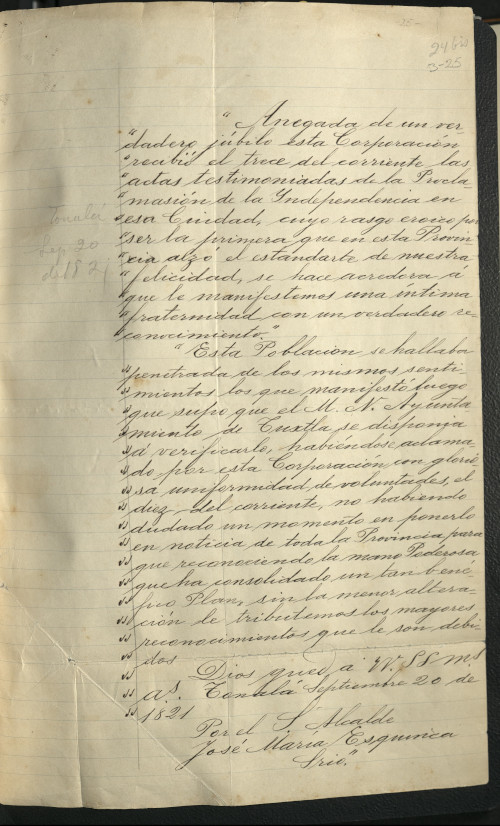 24 bis
3-25
Tonalá
Sep. 20
de 1821
" Anegada de un ver-
" dadero júbilo esta Corporación
" recibió el trece del corriente las
" actas testimoniadas de la Procla
" masión de la Independencia en
" esa Ciudad, cuyo rasgo eroico por
" ser la primera que en esta Provin
" cia alzó el estandarte de nuestra
" felicidad, se hace acredora á
" que le manifestemos una íntima
" fraternidad con un verdadero re-
" conocimiento."
" Esta Población se hallaba
" penitrada de los mismos senti
" mientos los que manifestó luego
" que supo que el M. N. Ayunta
" miento de Tuxtla se disponía
" á verificarlo, habiéndose aclama
" do por esta Corporación con glorio
" sa uniformidad de voluntades, el
" diez del corriente, no habiendo
" dudado un momento en ponerlo
" en noticia de toda la Provincia para
" que reconociendo la mano Poderosa
" que ha consolidado un tan bené
" fico Plan, sin la menor altera-
" ción le tributemos los mayores
" reconocimientos que le son debi
" dos
" Dios gue a VV. SS ms
" as. Tonalá Septiembre 20 de
" 1821
Por el S. Alcalde
José María Esquinca
Srio."